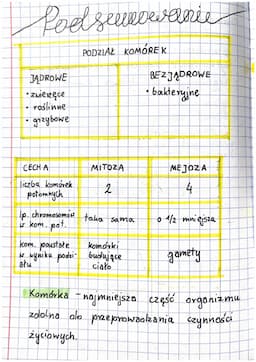 Podsumowanie
PODZIAŁ KOMÓREK
JĄDROWE
• zwierzęce
• roślinne
• grzybowe
BEZJĄDROWE
• bakteryjne
CECHA MITOZA MEJOZA
liczba komórek potomnych 2 4
lp. chromosomów w kom. pot. taka sama o 1/2 mniejsza
kom. powstałe w wyniku podziału komórki budujące ciało gamety
Komórka - najmniejsza część organizmu
zdolna do przeprowadzania czynności
życiowych.